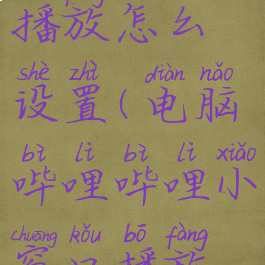 播放怎么
shè zhì diàn nǎo
设置(电脑
bì lì bì lì xiǎo
哔哩哔哩小
chuāng kǒu bō fàng
窗口播放